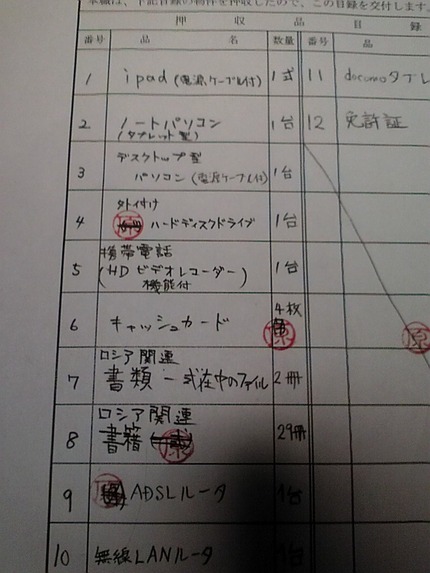 本職は、下記目録の物件を押収したので、この目録を交付します。
押収品目録
番号 品名 数量 番号 品
1 ipad (電源ケーブル付) 1式 11 docomoタブレ
2 ノートパソコン (タブレット型) 1台 12 免許証
3 デスクトップ型
パソコン (電源ケーブル付) 1台
4 外付け
ハードディスクドライブ 1台
5 携帯電話
(HDビデオレコーダー)
機能付 1台
6 キャッシュカード 4枚
原
原
7 ロシア関連
書類一式在中のファイル 2冊
8 ロシア関連
書籍 29冊
9 ADSLルータ 1台
10 無線LANルータ 1台